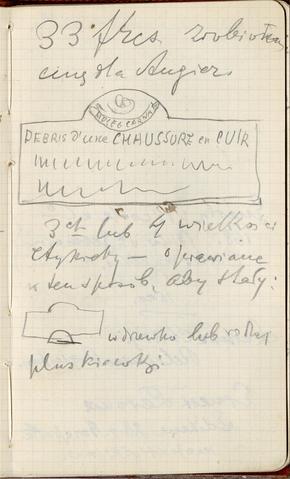 33 frcs. zrobiołem
dla Angiers
DEBRIS d'une CHAUSSURE en CUIR
3ct lub 4 wielkości
etykiety — oprawiane
w ten sposób, aby stały:
w drewko lub rodzaj
pluskiewki.